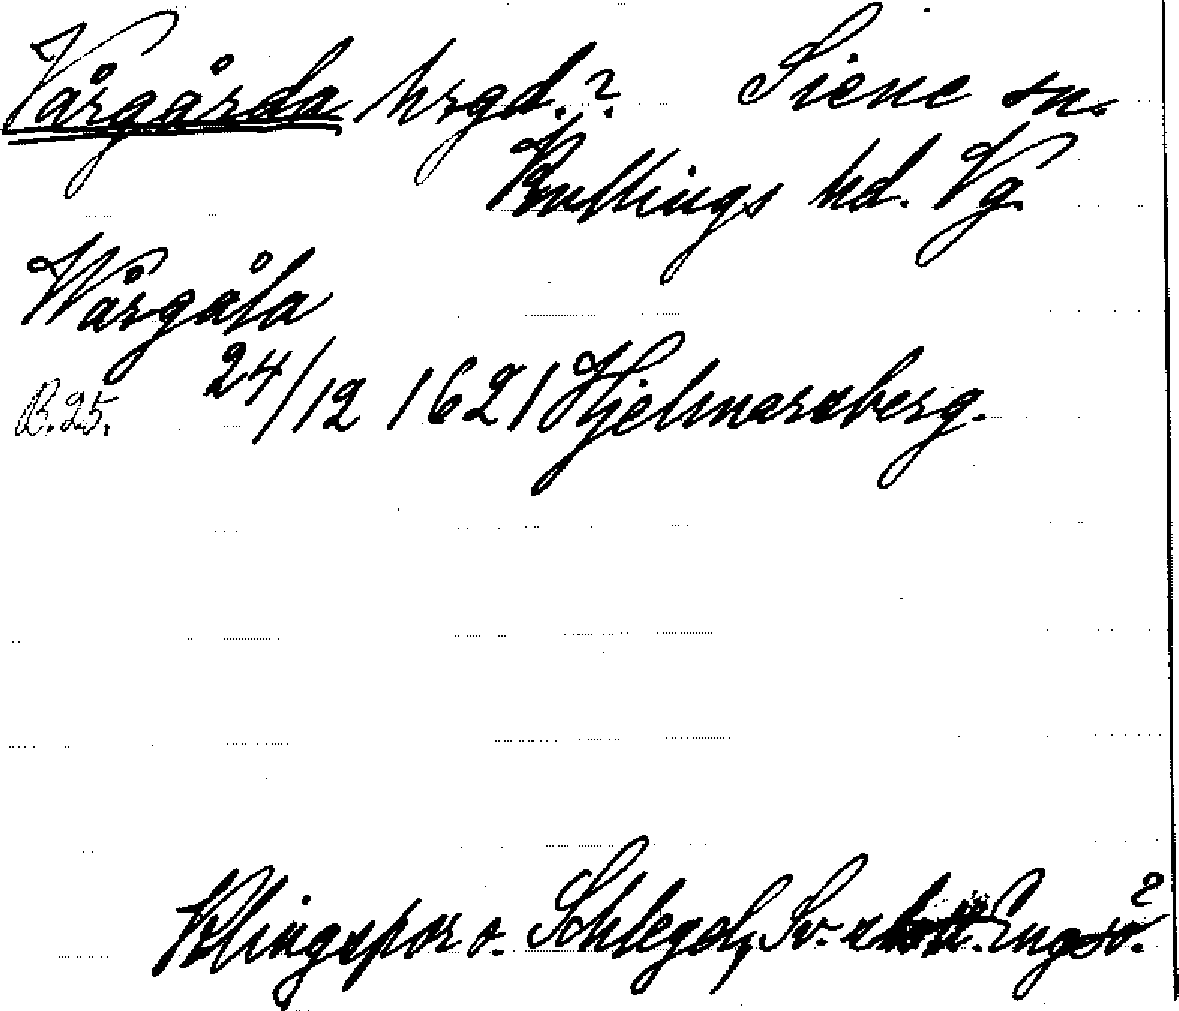 Vårgårda hrgd.? Siene sn.
Kullings hd. Vg.
Wårgåla
B.25. 24/12 1621 Hjelmarsberg.
Klingspor o. Schlegel, Sv. slott. Engsö?